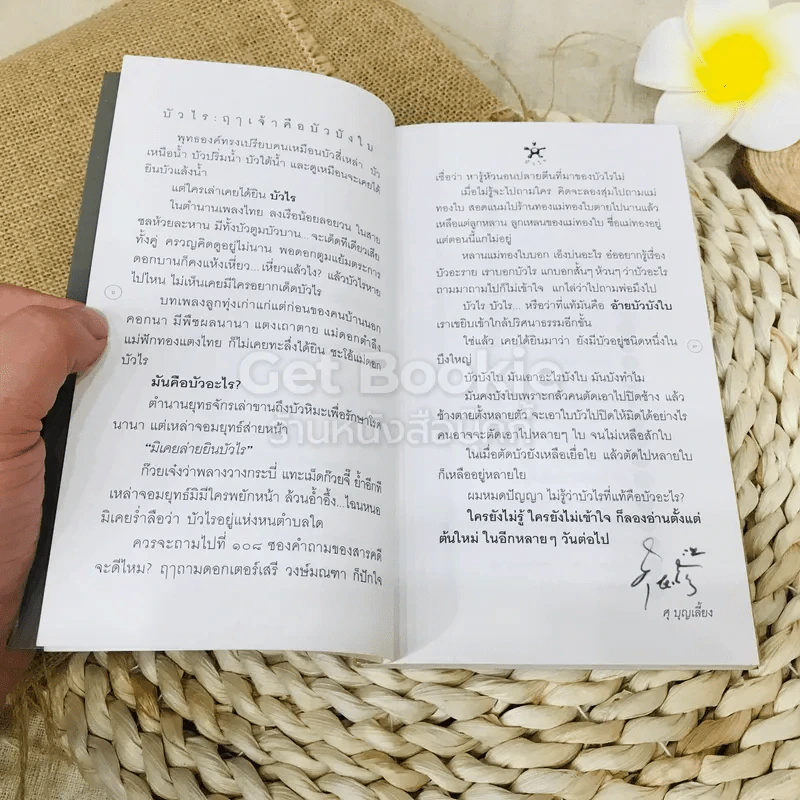 บัวไร : ฤๅเจ้าคือบัวบังใบ
พุทธองค์ทรงเปรียบคนเหมือนบัวสี่เหล่า บัว
เหนือน้ำ บัวปริ่มน้ำ บัวใต้น้ำ และดูเหมือนจะเคยได้
ยินบัวแล้งน้ำ
แต่ใครเล่าเคยได้ยิน บัวไร
ในตำนานเพลงไทย ลงเรือน้อยลอยวน ในสาย
ชลห้วยละหาน มีทั้งบัวตูมบัวบาน... จะเด็ดทีเดียวเสีย
ทั้งคู่ ครวญคิดดูอยู่ไม่นาน พอดอกตูมแย้มตระการ
ดอกบานก็คงแห้งเหี่ยว... เหี่ยวแล้วไง? แล้วบัวไรหาย
ไปไหน ไม่เห็นเคยมีใครอยากเด็ดบัวไร
บทเพลงลูกทุ่งเก่าแก่แต่ก่อนของคนบ้านนอก
คอกนา มีพืชผลนานา แตงเถาตาย แม่ดอกตำลึง
แม่ฟักทองแตงไทย ก็ไม่เคยทะลึ่งได้ยิน ชะโอ้แม่ดอก
บัวไร
มันคือบัวอะไร?
ตำนานยุทธจักรเล่าขานถึงบัวหิมะเพื่อรักษาโรค
นานา แต่เหล่าจอมยุทธ์ส่ายหน้า
“มิเคยล่ายยินบัวไร”
ก๊วยเจ๋งว่าพลางวางกระบี่ แทะเม็ดก๊วยจี๊ ย้ำอีกที
เหล่าจอมยุทธ์มิมีใครพยักหน้า ล้วนอ้ำอึ้ง...ไฉนหนอ
มิเคยร่ำลือว่า บัวไรอยู่แห่งหนตำบลใด
ควรจะถามไปที่ ๑๐๘ ซองคำถามของสารคดี
จะดีไหม? ฤๅถามดอกเตอร์เสรี วงษ์มณฑา ก็ปักใจ
เชื่อว่า หารู้หัวนอนปลายตีนที่มาของบัวไรไม่
เมื่อไม่รู้จะไปถามใคร คิดจะลองสุ่มไปถามแม่
ทองใบ สอดแนมไปร้านทองแม่ทองใบตายไปนานแล้ว
เหลือแต่ลูกหลาน ลูกเหลนของแม่ทองใบ ชื่อแม่ทองอยู่
แต่ตอนนี้แกไม่อยู่
หลานแม่ทองใบบอก เอ็งบ่นอะไร อ๋ออยากรู้เรื่อง
บัวอะราย เราบอกบัวไร แกบอกสั้นๆ ห้วนๆ ว่าบัวอะไร
ถามมาถามไปก็ไม่เข้าใจ แกไล่ว่าไปถามพ่อมึงไป
บัวไร บัวไร... หรือว่าที่แท้มันคือ อ้ายบัวบังใบ
เราเขยิบเข้าใกล้ปริศนาธรรมอีกชั้น
ใช่แล้ว เคยได้ยินมาว่า ยังมีบัวอยู่ชนิดหนึ่งใน
บึงใหญ่
บัวบังใบ มันเอาอะไรบังใบ มันบังทำไม
มันคงบังใบเพราะกลัวคนตัดเอาไปปิดช้าง แล้ว
ช้างตายตั้งหลายตัว จะเอาใบบัวไปปิดให้มิดได้อย่างไร
คนอาจจะตัดเอาไปหลายๆ ใบ จนไม่เหลือสักใบ
ในเมื่อตัดบัวยังเหลือเยื่อใย แล้วตัดไปหลายใบ
ก็เหลืออยู่หลายใย
ผมหมดปัญญา ไม่รู้ว่าบัวไรที่แท้คือบัวอะไร?
ใครยังไม่รู้ ใครยังไม่เข้าใจ ก็ลองอ่านตั้งแต่
ต้นใหม่ ในอีกหลายๆ วันต่อไป
ศุ บุญเลี้ยง
Get Bookie
ร้านหนังสือมือถือ